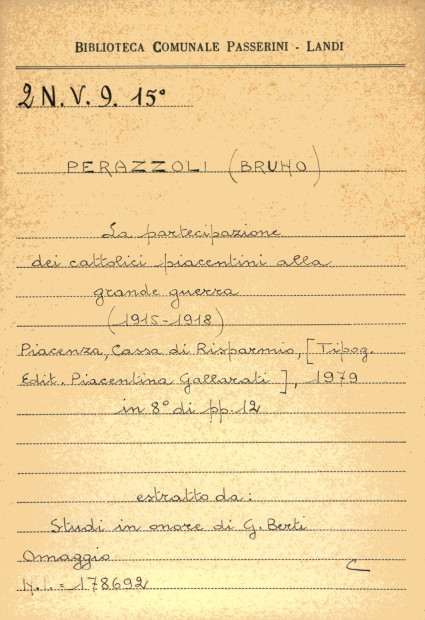 BIBLIOTECA COMUNALE PASSERINI - LANDI
2 N. V. 9. 15°
PERAZZOLI (BRUNO)
La partecipazione
dei cattolici piacentini alla
grande guerra
(1915-1918)
Piacenza, Cassa di Risparmio, [Tipog.
Edit. Piacentina Gallarati], 1979
in 8° di pp. 12
estratto da:
Studi in onore di G. Berti
Omaggio
N.I. = 178692
C